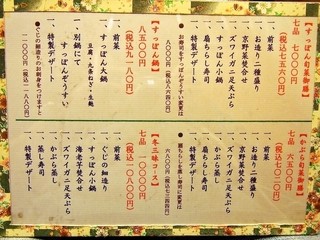 【すっぽん旬菜御膳】
七品 七〇〇〇円
（税込七五六〇円）
一、前菜
一、お造り二種盛り
一、京野菜焚合せ
一、ズワイガニ足天ぷら
一、すっぽん小鍋
一、扇ちらし寿司
一、特製デザート
【かぶら旬菜御膳】
七品 六五〇〇円
（税込七〇二〇円）
一、前菜
一、お造り二種盛り
一、京野菜焚合せ
一、ズワイガニ足天ぷら
一、かぶら蒸し
一、扇ちらし寿司
一、特製デザート
【すっぽん鍋】
八五〇〇円
（税込九一八〇円）
一、前菜
一、すっぽん大鍋
豆腐・九条ねぎ・生麩
一、別鍋にて
すっぽんぞうすい
一、特製デザート
【冬三昧コース】
七品 一〇〇〇〇円
（税込一〇八〇〇円）
一、前菜
一、ぐじの細造り
一、すっぽん小鍋
一、海老芋焚合せ
一、ズワイガニ足天ぷら
一、かぶら蒸し
一、蒸し寿司
一、特製デザート